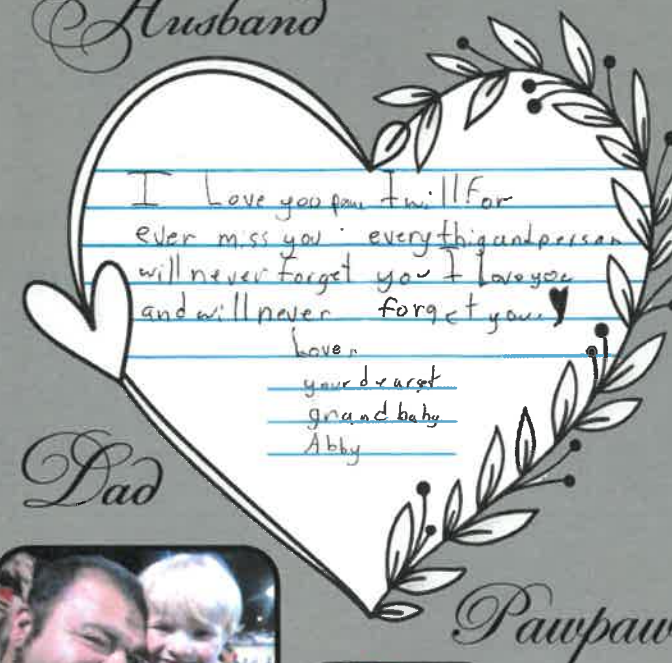 Husband
I Love you paw I will for
ever miss you everythig and person
will never forget you I Love you
and will never forget you.
Love,
your dearest
grandbaby
Abby
Dad
Pawpaw